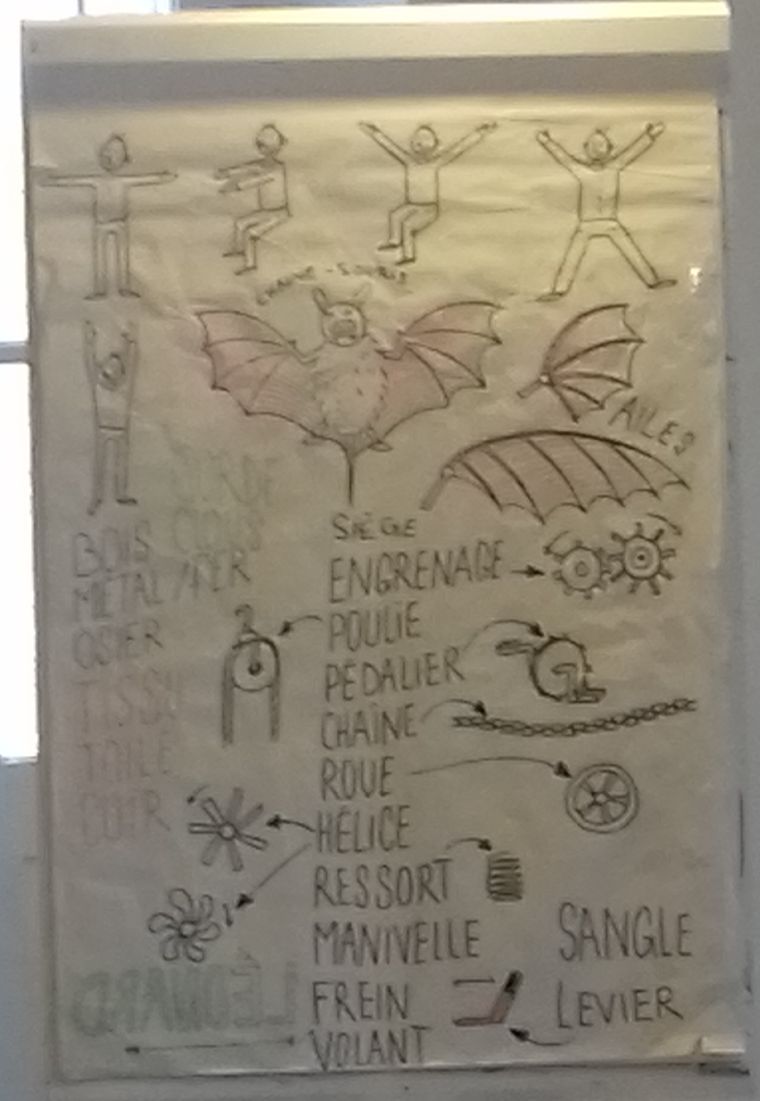 CHAUVE-SOURIS
AILES
CORDE
CLOUS
BOIS
MÉTAL/FER
OSIER
TISSU
TOILE
CUIR
SIÈGE
ENGRENAGE
POULIE
PÉDALIER
CHAÎNE
ROUE
HÉLICE
RESSORT
MANIVELLE
FREIN
VOLANT
SANGLE
LEVIER
LÉONARD